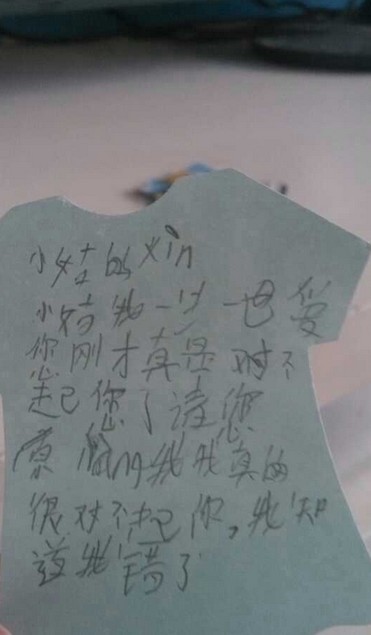 小姑的xin
小姑我一 也爱
您刚才真是对不
起您了请您
原 我我真的
很对不起你,我知
道我错了